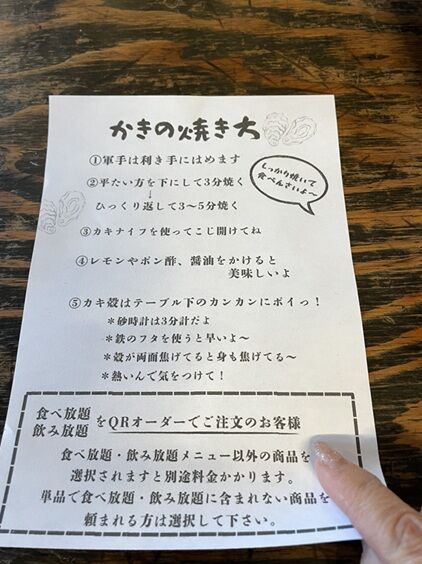 かきの焼き方
①軍手は利き手にはめます
しっかり焼いて
食べんさいよ～
②平たい方を下にして3分焼く
↓
ひっくり返して3～5分焼く
③カキナイフを使ってこじ開けてね
④レモンやポン酢、醤油をかけると
美味しいよ
⑤カキ殻はテーブル下のカンカンにポイっ！
＊砂時計は3分計だよ
＊鉄のフタを使うと早いよ～
＊殻が両面焦げてると身も焦げてる～
＊熱いんで気をつけて！
食べ放題
飲み放題 をQRオーダーでご注文のお客様
食べ放題・飲み放題メニュー以外の商品を
選択されますと別途料金かかります。
単品で食べ放題・飲み放題に含まれない商品を
頼まれる方は選択して下さい。